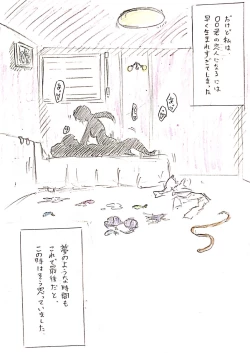 だけど私は、
〇〇君の恋人になるには
早く生まれすぎてしまった
夢のような時間も
これで最後だと、
この時はそう思っていました